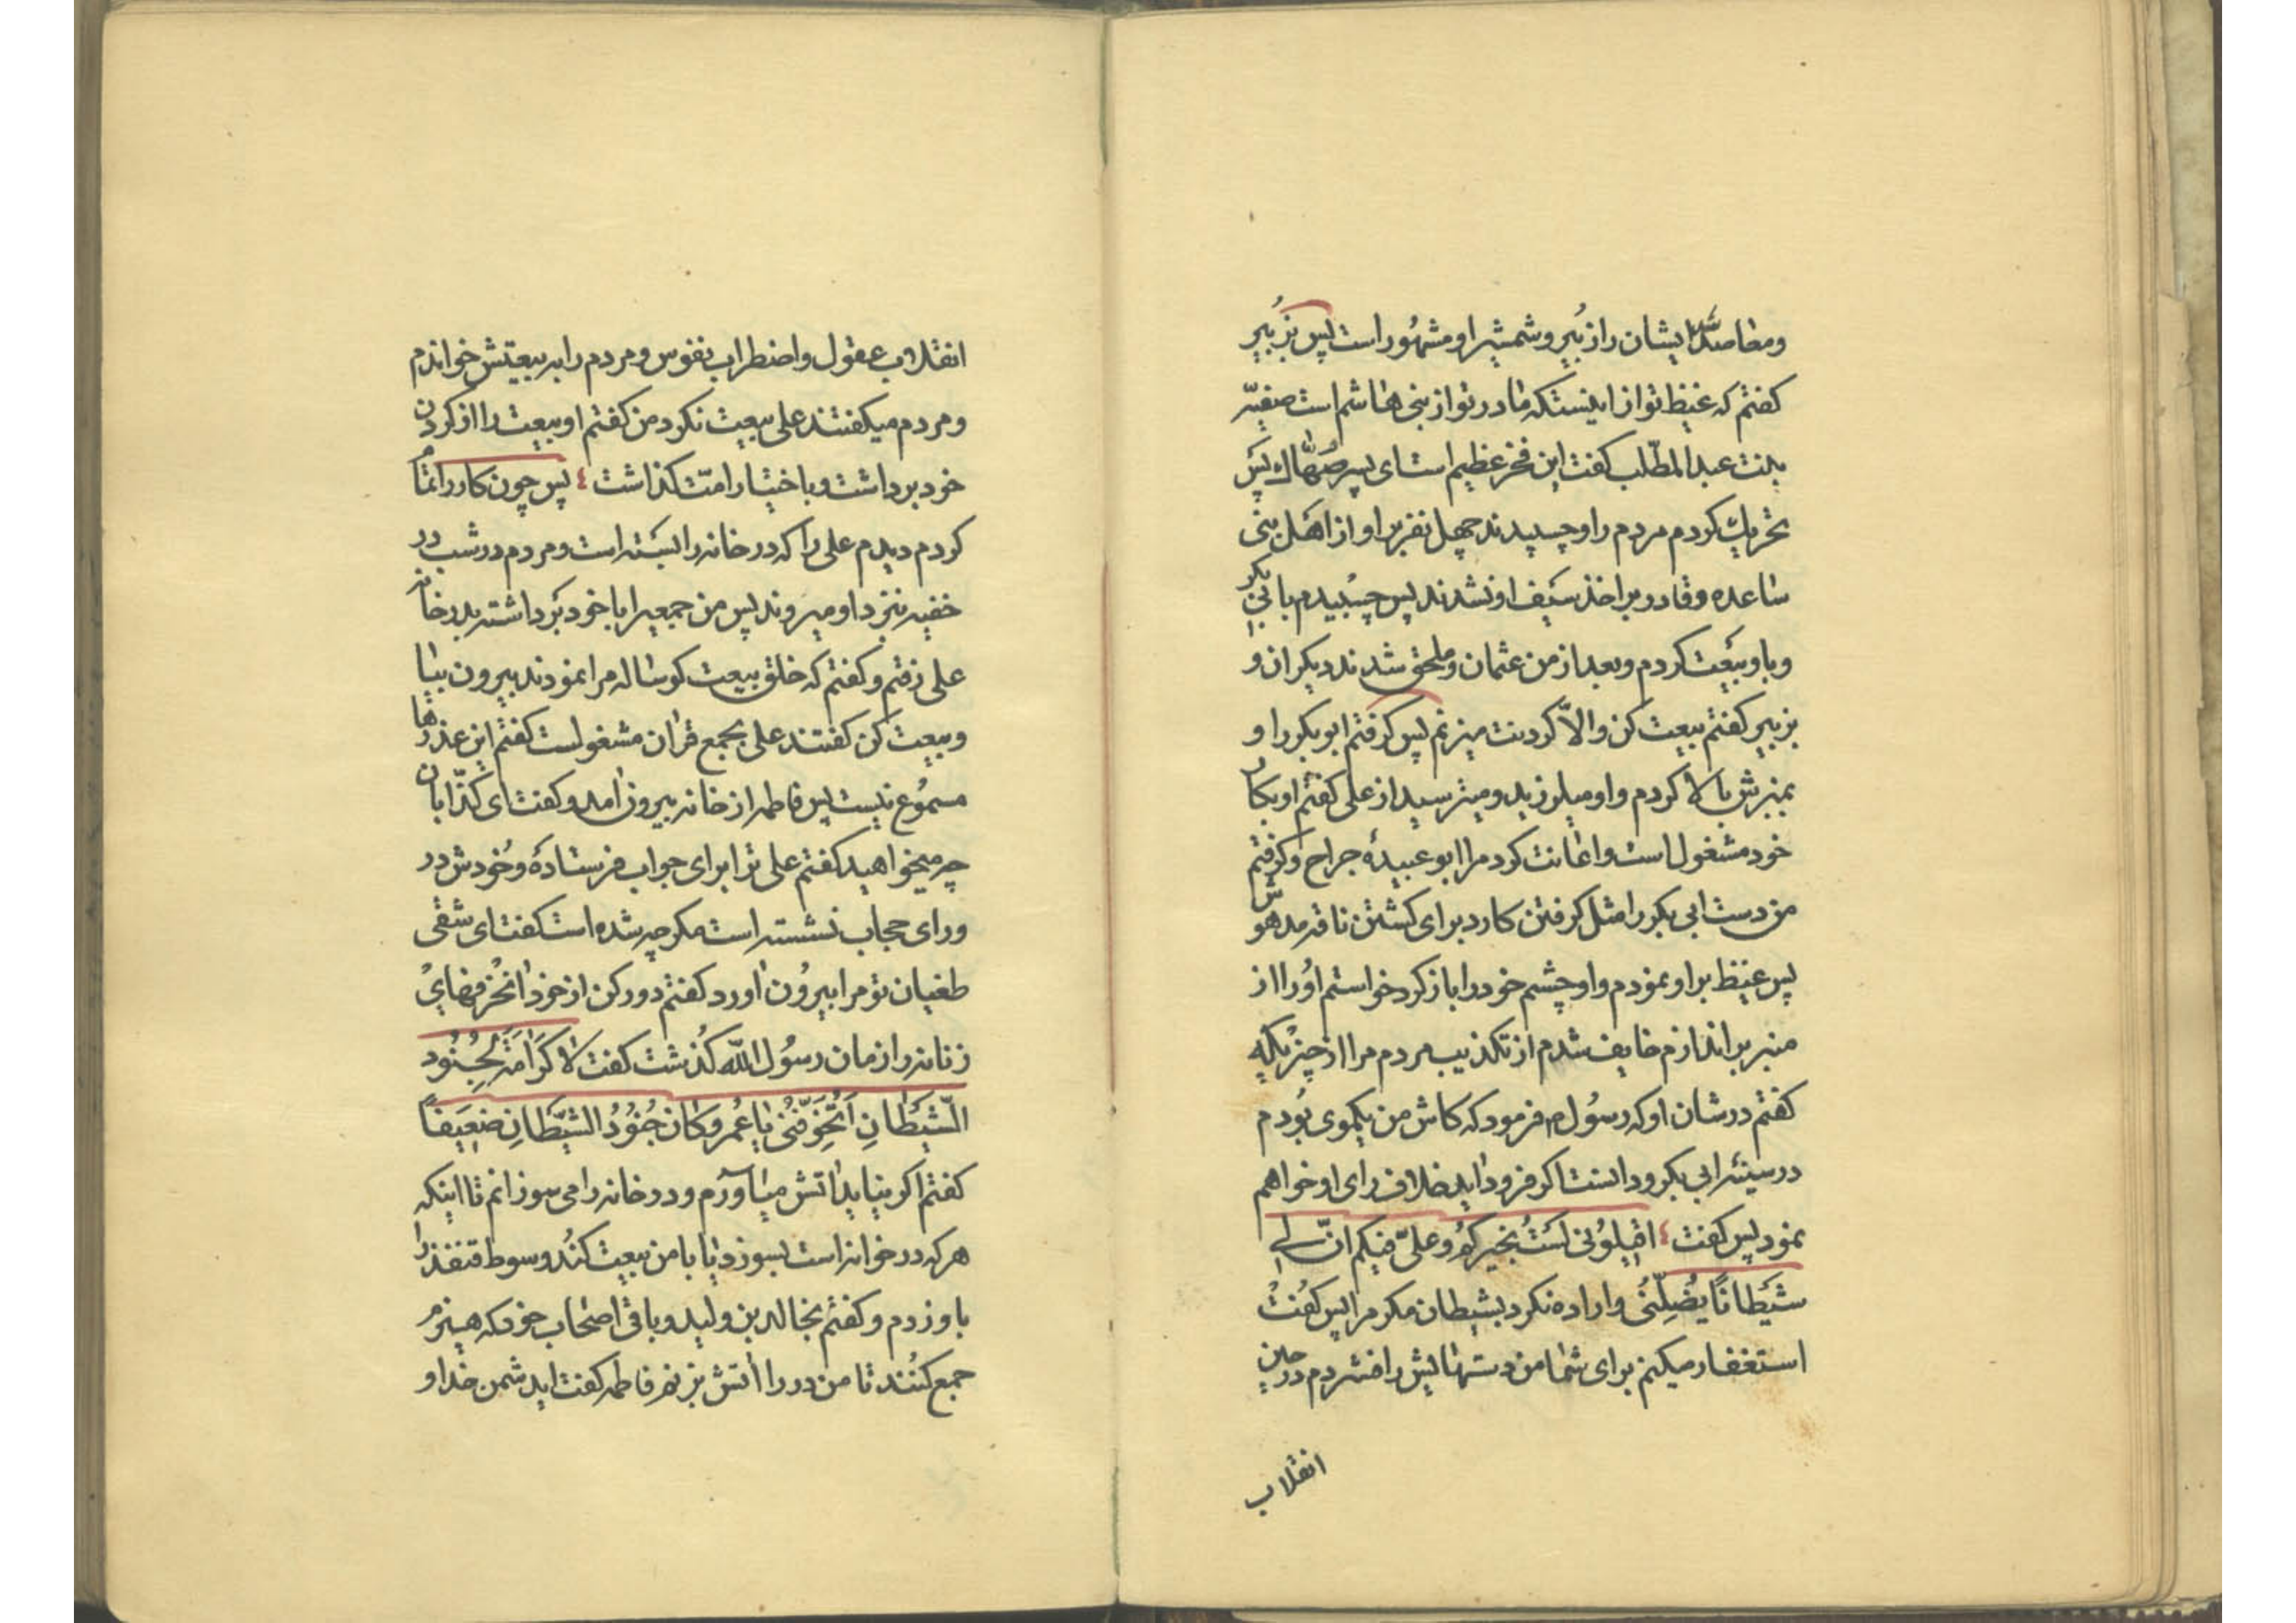 ومفاصله ایشان را زبیر و شمشیر او مشهور است پس بزبیر
کفتم که غیظ تو از اینستکه مادر تو از بنی هاشم است صفیّه
بنت عبدالمطّلب کفت این فخر عظیم است ای پسر صهّاک پس
تحریک کردم مردم را و چسپیدند چهل نفر بر او از اهل بنی
ساعده و قادر بر اخذ سیف او نشدند پس چسبیدم بابی بکر
و باو بیعت کردم و بعد از من عثمان و ملحق شدند دیکران و
بزبیر کفتم بیعت کن والّا کردنت میزنم پس کرفتم ابوبکر را و
بمنبرش بالا کردم و او میلرزید و میترسید از علی کفتم او بکار
خود مشغول است و اعانت کرد مرا ابو عبیدهٔ جراح و کرفتم
من دست ابی بکر را مثل کرفتن کارد برای کشتن ناقه مدهوش
پس غیظ بر او نمودم و او چشم خود را باز کرد خواستم اورا از
منبر براندازم خایف شدم از تکذیب مردم مرا از چیزیکه
کفتم در شان او که رسول م فرمود که کاش من یکموی بودم
در سینه ابی بکر و دانست اکر فرود اید خلاف رای او خواهم
نمود پس کفت ٤ اقیلونی لستُ بخیرکم و علیّ فیکم انّ لی
شیطانًا یضلّنی و اراده نکرد بشیطان مکر مرا پس کفت
استغفار میکنم برای شما من دستهایش را فشردم در حین
انقلاب
انقلاب عقول و اضطراب نفوس و مردم را بر بیعتش خواندم
و مردم میکفتند علی بیعت نکرد من کفتم او بیعت را از کردن
خود برداشت و باختیار امّت کذاشت ٤ پس چون کار را تمام
کردم دیدم علی را که در خانه را بسته است و مردم در شب در
خفیه نزد او میروند پس من جمعیرا با خود برداشته بدر خانه
علی رفتم و کفتم که خلق بیعت کوساله مرا نمودند بیرون بیا
و بیعت کن کفتند علی بجمع قران مشغولست کفتم این عذرها
مسموع نیست پس فاطمه از خانه بیرون امد و کفت ای کذّابان
چه میخواهید کفتم علی ترا برای جواب فرستادهٔ و خودش در
ورای حجاب نشسته است مکر چه شده است کفت ای شقی
طغیان تو مرا بیرون اورد کفتم دور کن از خود انحرفهای
زنانه را زمان رسول اللّه کذشت کفت لا کرامة لجنود
الشّیطانِ اَتُخَوِّفُنی یا عُمر و کان جُنُودُ الشّیطانِ ضعیفاً
کفتم اکر نیاید اتش میاورم و در خانه را می سوزانم تا اینکه
هر که در خوانه است بسوزد یا با من بیعت کند و سوط قنفذ را
باو زدم و کفتم بخالد بن ولید و باقی اصحاب خود که هیزم
جمع کنند تا من در را اتش بزنم فاطمه کفت ایدشمن خدا و